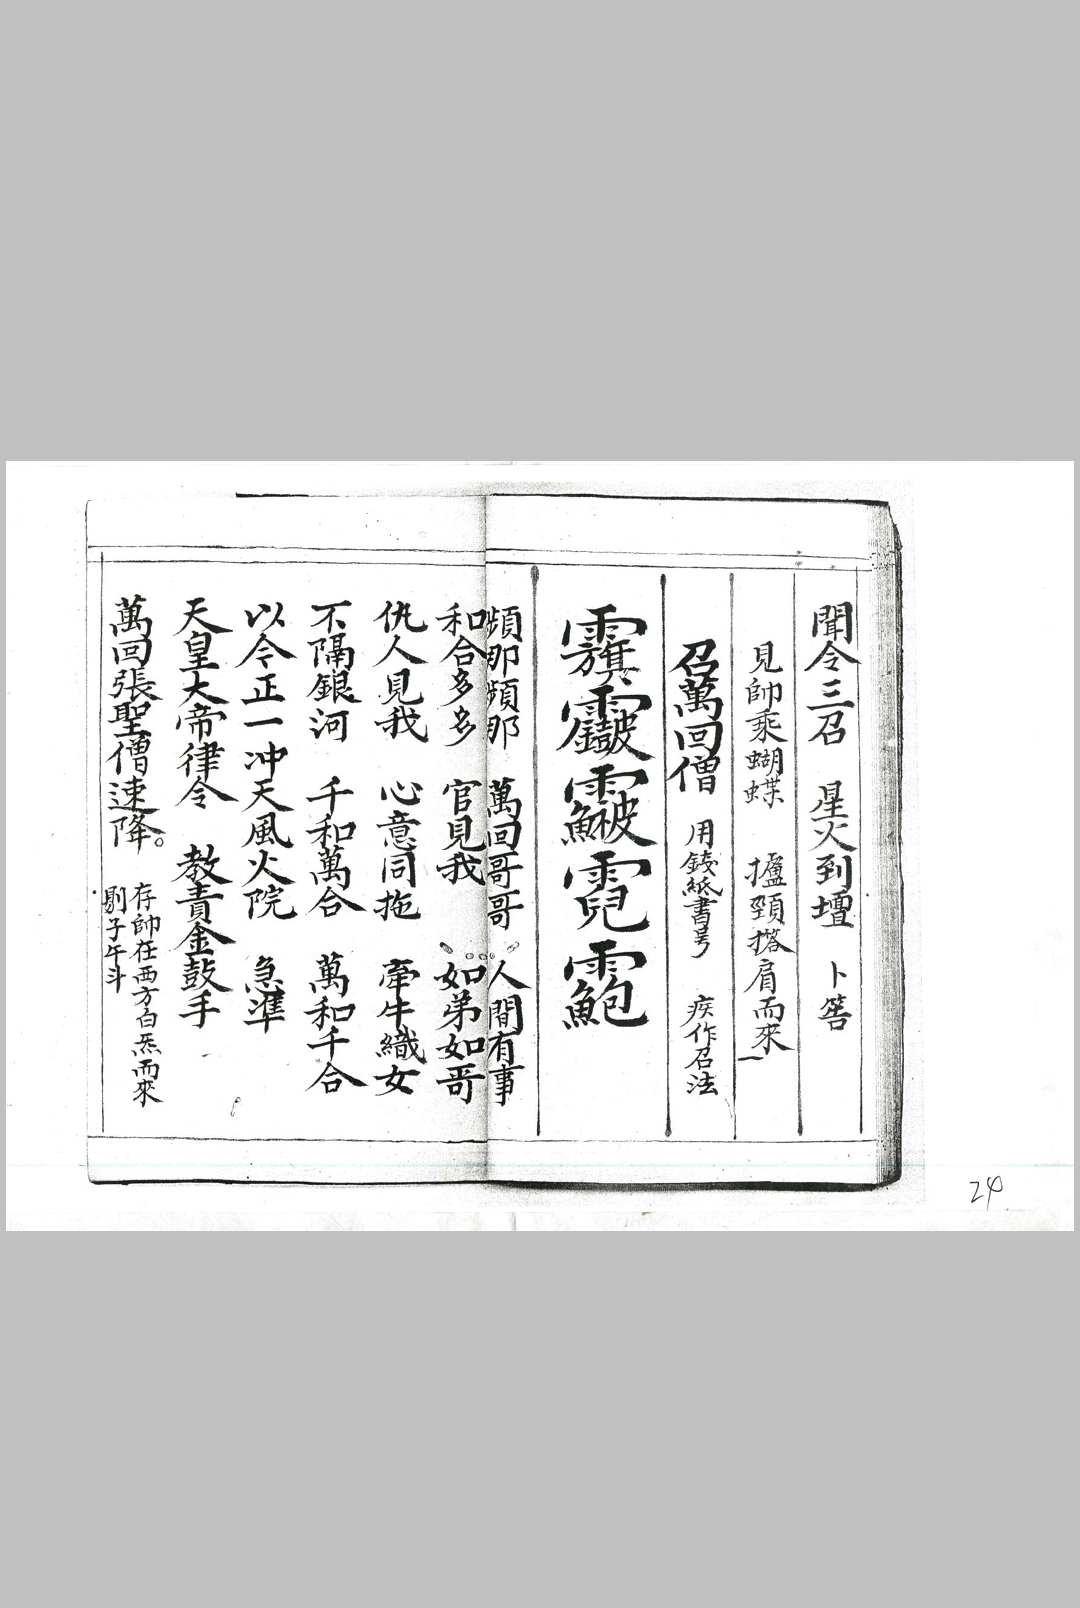 聞令三召　星火到壇　卜筶
見帥乘蝴蝶　搕頸撘肩而來
召萬回僧　用錢紙書号　疾作召法
頻那頻那　萬回哥哥　人間有事
和合多多　官見我　如弟如哥
仇人見我　心意同拖　牽牛織女
不隔銀河　千和萬合　萬和千合
以令正一冲天風火院　急準
天皇大帝律令　教責金鼓手
萬回張聖僧速降。
存帥在西方白炁而來
剔子午斗
24